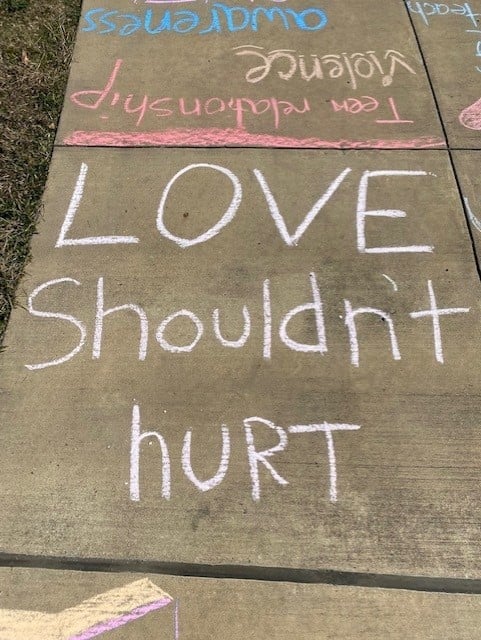 LOVE
Shouldn't
hURT
Teen relationship
violence
awareness
teach